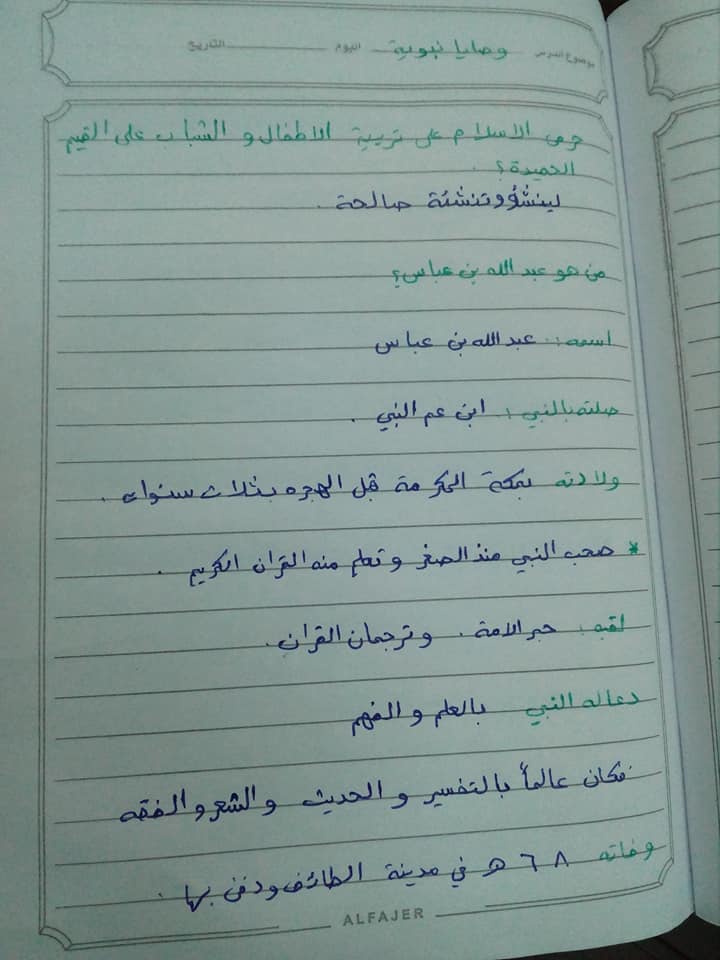 موضوع الدرس وصايا نبوية اليوم التاريخ
حرص الاسلام على تربية الاطفال و الشباب على القيم
الحميدة ؟
لينشؤو تنشئة صالحة .
من هو عبد الله بن عباس ؟
اسمه : عبد الله بن عباس
صلته بالنبي : ابن عم النبي .
ولادته بمكة المكرمة قبل الهجره بثلاث سنوات .
* صحب النبي منذ الصغر و تعلم منه القران الكريم .
لقبه : حبر الامة . و ترجمان القران .
دعا له النبي بالعلم و الفهم
فكان عالماً بالتفسير و الحديث و الشعر و الفقه
وفاته ٦٨ هـ في مدينة الطائف ودفن بها .
ALFAJER